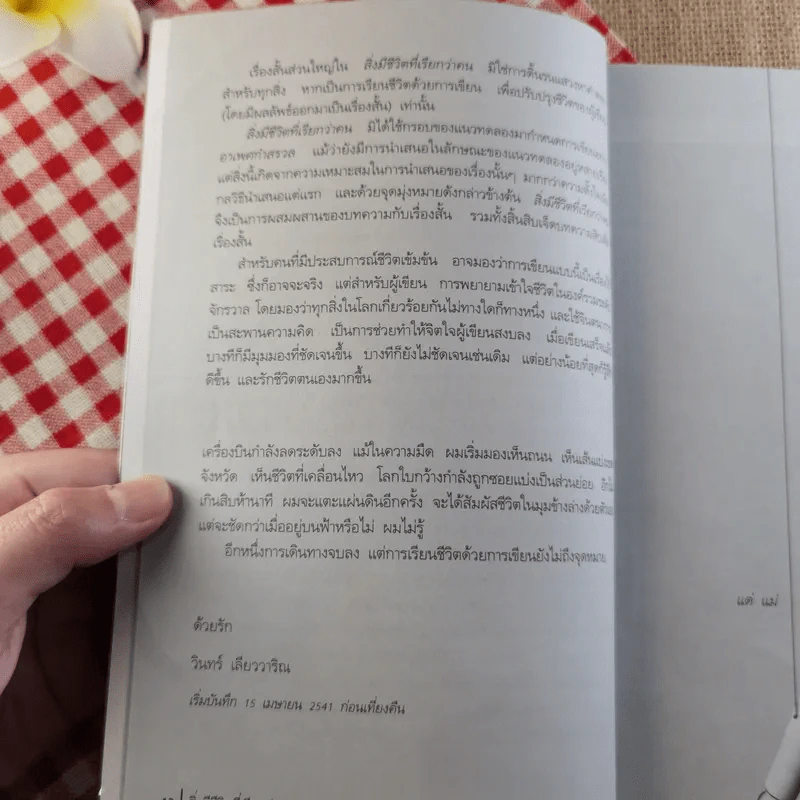 เรื่องสั้นส่วนใหญ่ใน สิ่งมีชีวิตที่เรียกว่าคน มิใช่การดิ้นรนแสวงหา
สำหรับทุกสิ่ง หากเป็นการเรียนชีวิตด้วยการเขียน เพื่อปรับปรุงชีวิตของผู้เขียน
(โดยมีผลลัพธ์ออกมาเป็นเรื่องสั้น) เท่านั้น
สิ่งมีชีวิตที่เรียกว่าคน มิได้ใช้กรอบของแนวทดลองมากำหนดการเขียน
อาเพศกำสรวล แม้ว่ายังมีการนำเสนอในลักษณะของแนวทดลองอยู่หลายเรื่อง
แต่สิ่งนี้เกิดจากความเหมาะสมในการนำเสนอของเรื่องนั้นๆ มากกว่าความตั้งใจ
กลวิธีนำเสนอแต่แรก และด้วยจุดมุ่งหมายดังกล่าวข้างต้น สิ่งมีชีวิตที่เรียกว่าคน
จึงเป็นการผสมผสานของบทความกับเรื่องสั้น รวมทั้งสิ้นสิบเจ็ดบทความ
เรื่องสั้น
สำหรับคนที่มีประสบการณ์ชีวิตเข้มข้น อาจมองว่าการเขียนแบบนี้เป็นเรื่อง
สาระ ซึ่งก็อาจจะจริง แต่สำหรับผู้เขียน การพยายามเข้าใจชีวิตในองค์รวม
จักรวาล โดยมองว่าทุกสิ่งในโลกเกี่ยวร้อยกันไม่ทางใดก็ทางหนึ่ง และใช้จินตนาการ
เป็นสะพานความคิด เป็นการช่วยทำให้จิตใจผู้เขียนสงบลง เมื่อเขียนเสร็จแล้ว
บางทีก็มีมุมมองที่ชัดเจนขึ้น บางทีก็ยังไม่ชัดเจนเช่นเดิม แต่อย่างน้อยที่สุดก็รู้สึก
ดีขึ้น และรักชีวิตตนเองมากขึ้น
เครื่องบินกำลังลดระดับลง แม้ในความมืด ผมเริ่มมองเห็นถนน เห็นเส้นแบ่งเขต
จังหวัด เห็นชีวิตที่เคลื่อนไหว โลกใบกว้างกำลังถูกซอยแบ่งเป็นส่วนย่อย อีกไม่
เกินสิบห้านาที ผมจะแตะแผ่นดินอีกครั้ง จะได้สัมผัสชีวิตในมุมข้างล่างด้วยตัวเอง
แต่จะชัดกว่าเมื่ออยู่บนฟ้าหรือไม่ ผมไม่รู้
อีกหนึ่งการเดินทางจบลง แต่การเรียนชีวิตด้วยการเขียนยังไม่ถึงจุดหมาย
ด้วยรัก
วินทร์ เลียววาริณ
เริ่มบันทึก 15 เมษายน 2541 ก่อนเที่ยงคืน
แด่ แม่